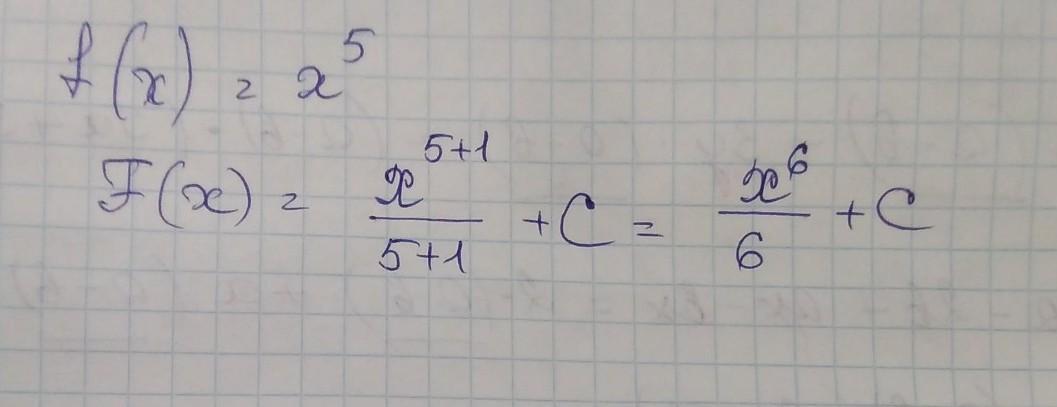 f(x) = x^5
F(x) = x^(5+1)/(5+1) + C = x^6/6 + C